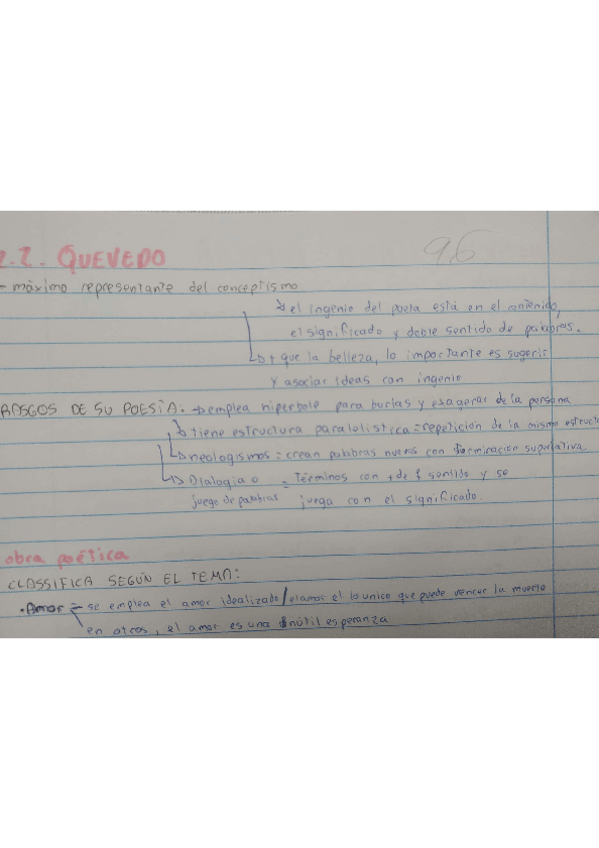 2.2. QUEVEDO
96
- máximo representante del conceptismo
el ingenio del poeta está en el contenido,
el significado y doble sentido de palabras.
+ que la belleza, lo importante es sugerir
y asociar ideas con ingenio
RASGOS DE SU POESÍA: → emplea hiperbole para burlas y exagerar de la persona
tiene estructura paralelistica = repetición de la misma estructu
neologismos = crean palabras nuevas con terminación superlativa
Dialogia o = Términos con + de 1 sentido y se
juego de palabras juega con el significado.
obra poética
CLASSIFICA SEGÚN EL TEMA:
• Amor - se emplea el amor idealizado / el amor el lo unico que puede vencer la muerte
en otros, el amor es una inútil esperanza